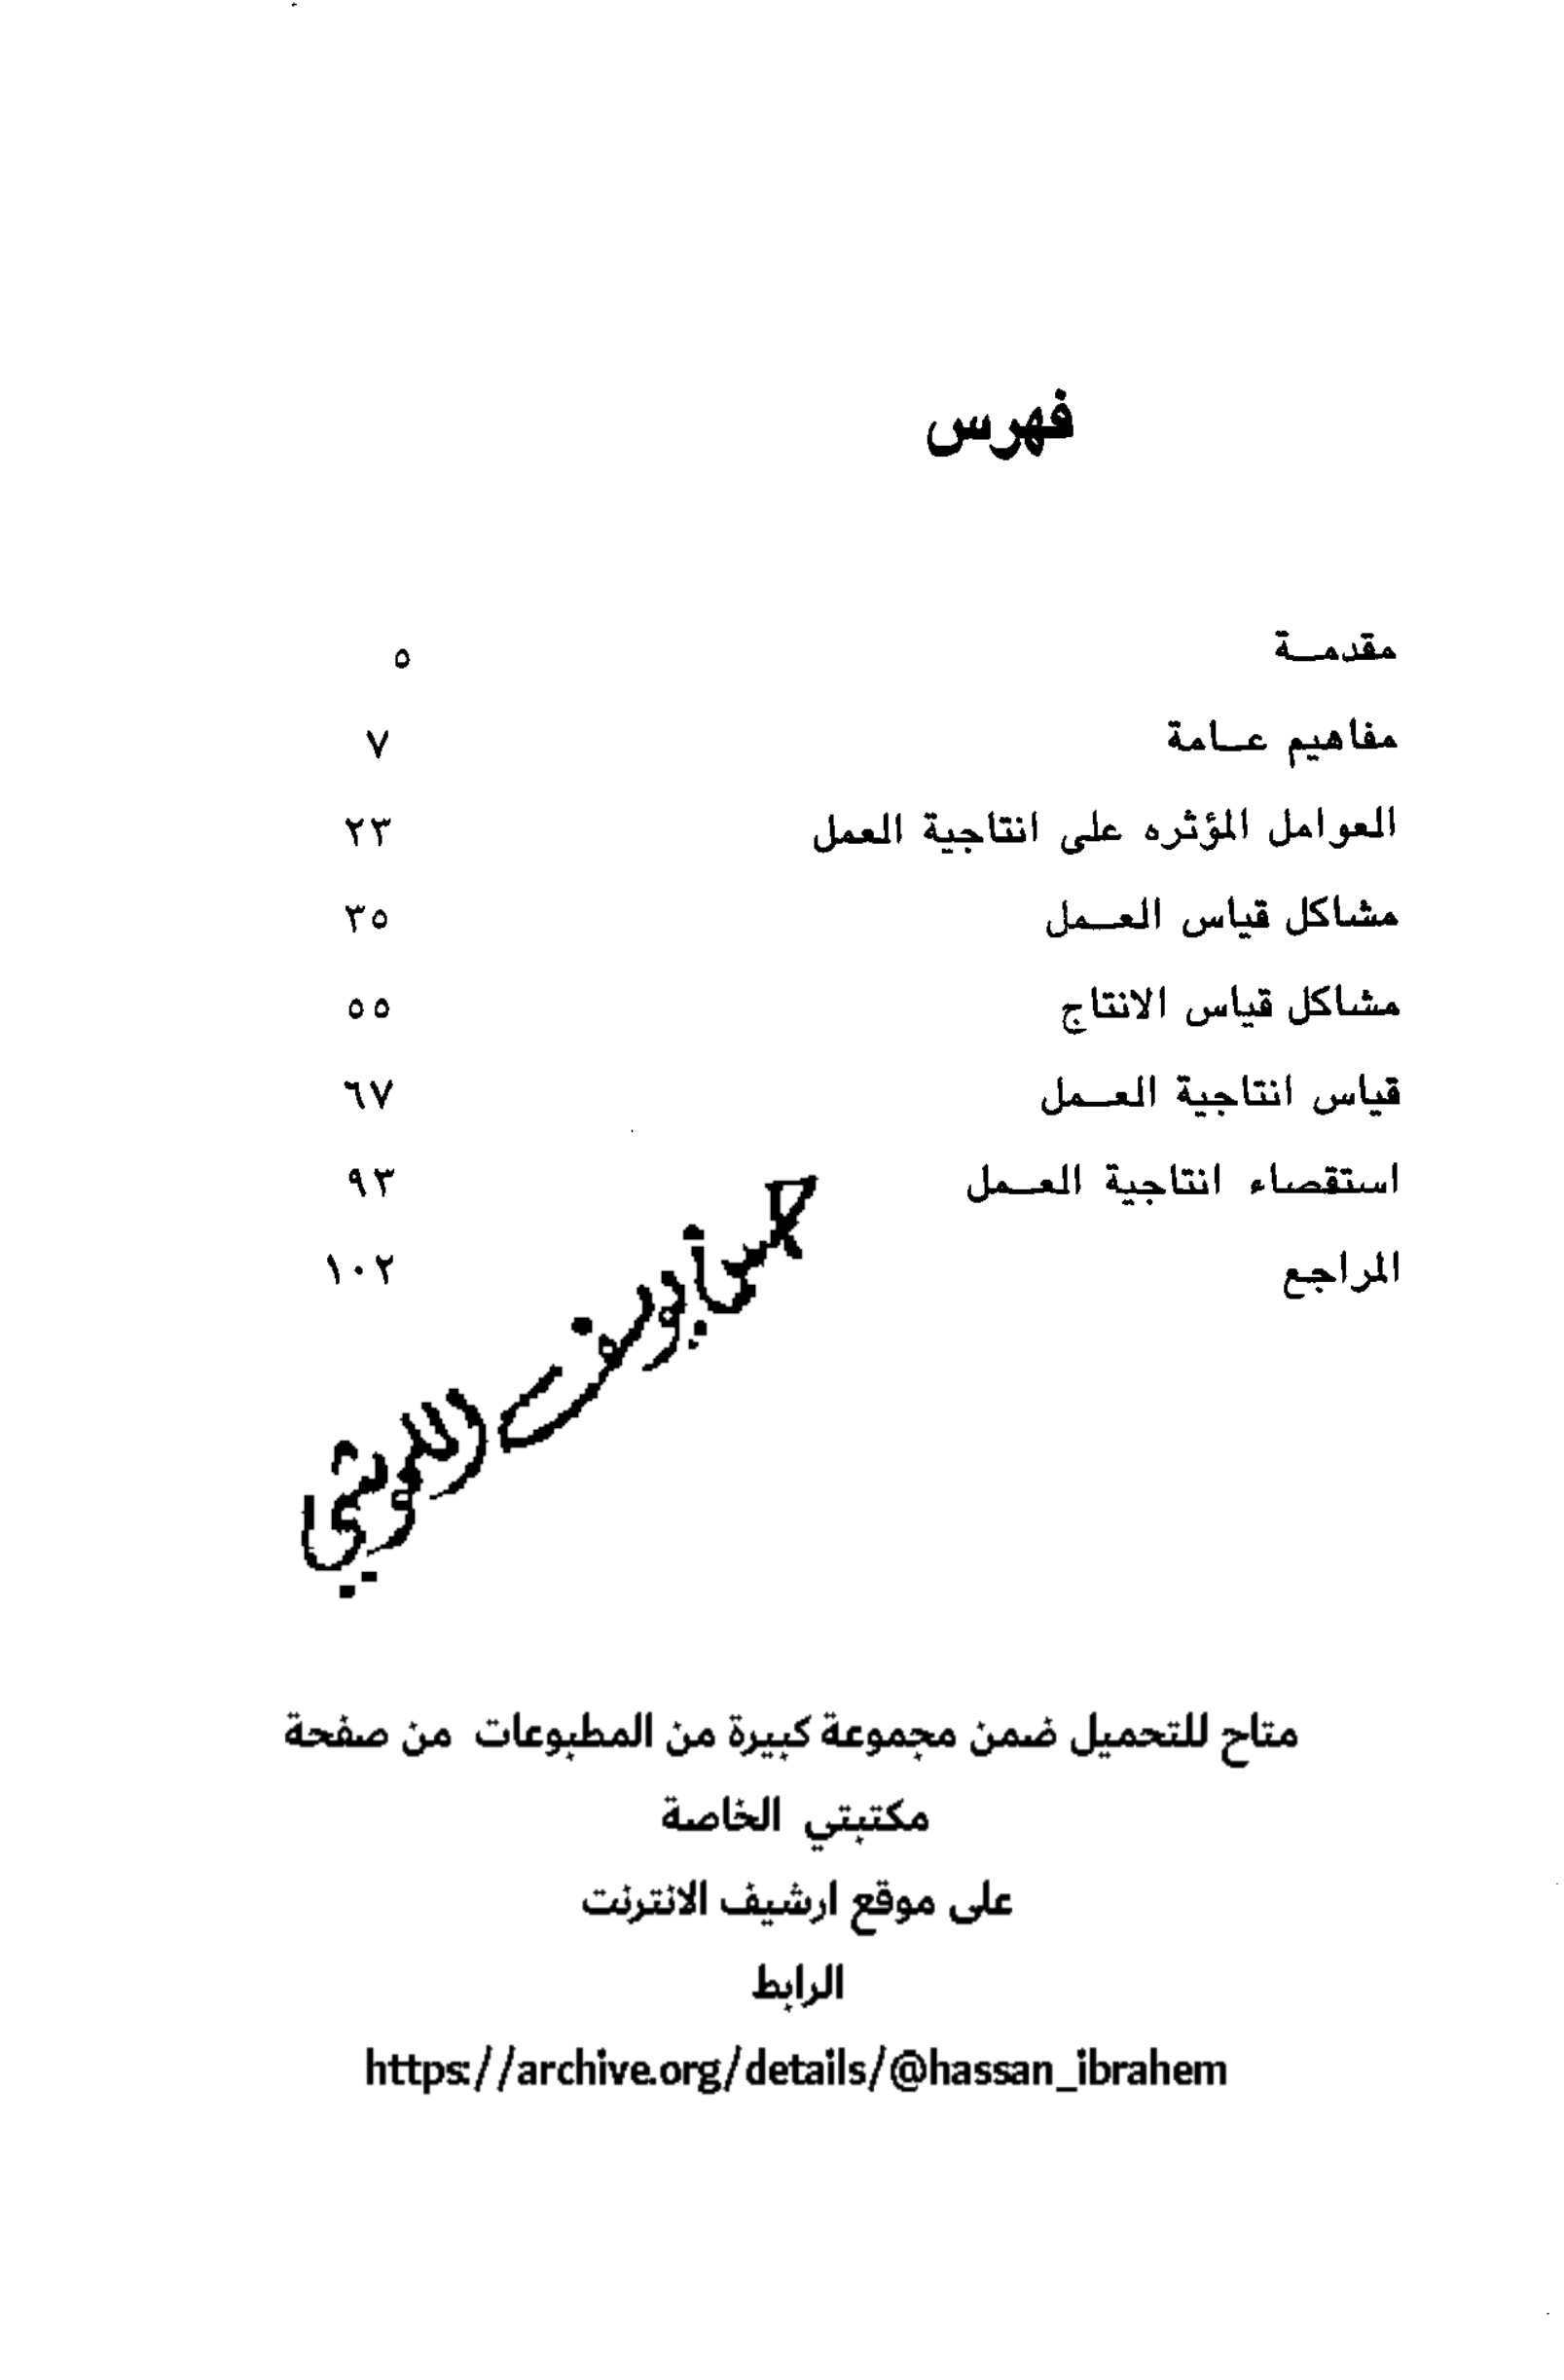 فهرس
مقدمــة ٥
مفاهيم عــامة ٧
العوامل المؤثره على انتاجية العمل ٢٣
مشاكل قياس العــمل ٣٥
مشاكل قياس الانتاج ٥٥
قياس انتاجية العــمل ٦٧
استقصاء انتاجية العــمل ٩٣
المراجع ١٠٢
متاح للتحميل ضمن مجموعة كبيرة من المطبوعات من صفحة
مكتبتي الخاصة
على موقع ارشيف الانترنت
الرابط
https://archive.org/details/@hassan_ibrahem